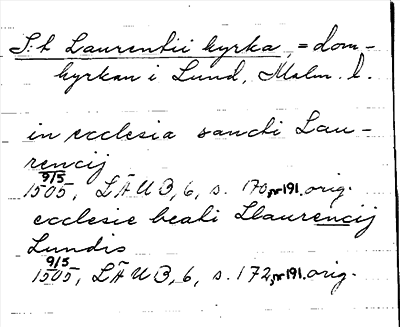 S:t Laurentii kyrka, = dom-
kyrkan i Lund, Malm. l.
in ecclesia sancti Lau-
rencij
9/5
1505, LÄUB, 6, s. 170, nr 191. orig.
ecclesie beati Llaurencij
Lundis
9/5
1505, LÄUB, 6, s. 172, nr 191. orig.